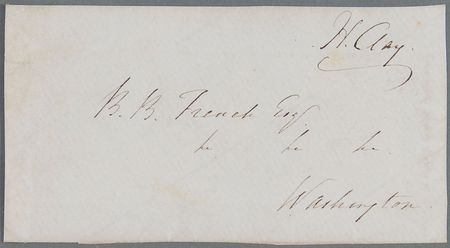 H. Clay.
B. B. French Esq.
&c &c &c.
Washington